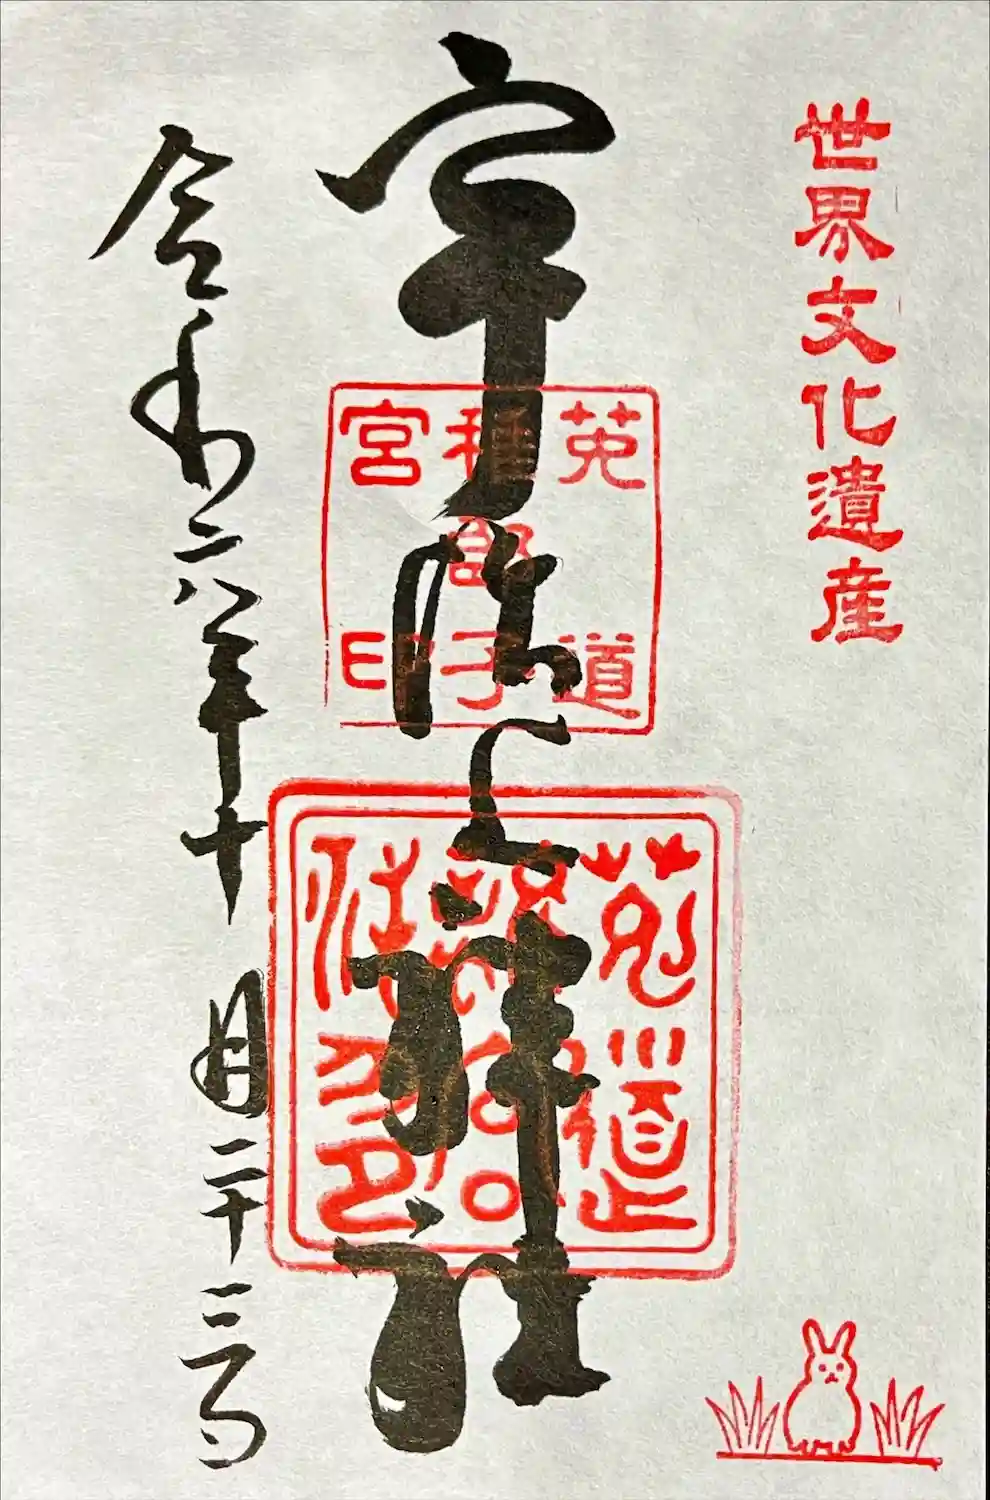 世界文化遺産
宇治上神社
莵道
稚郎子
宮印
令和六年十月二十三日